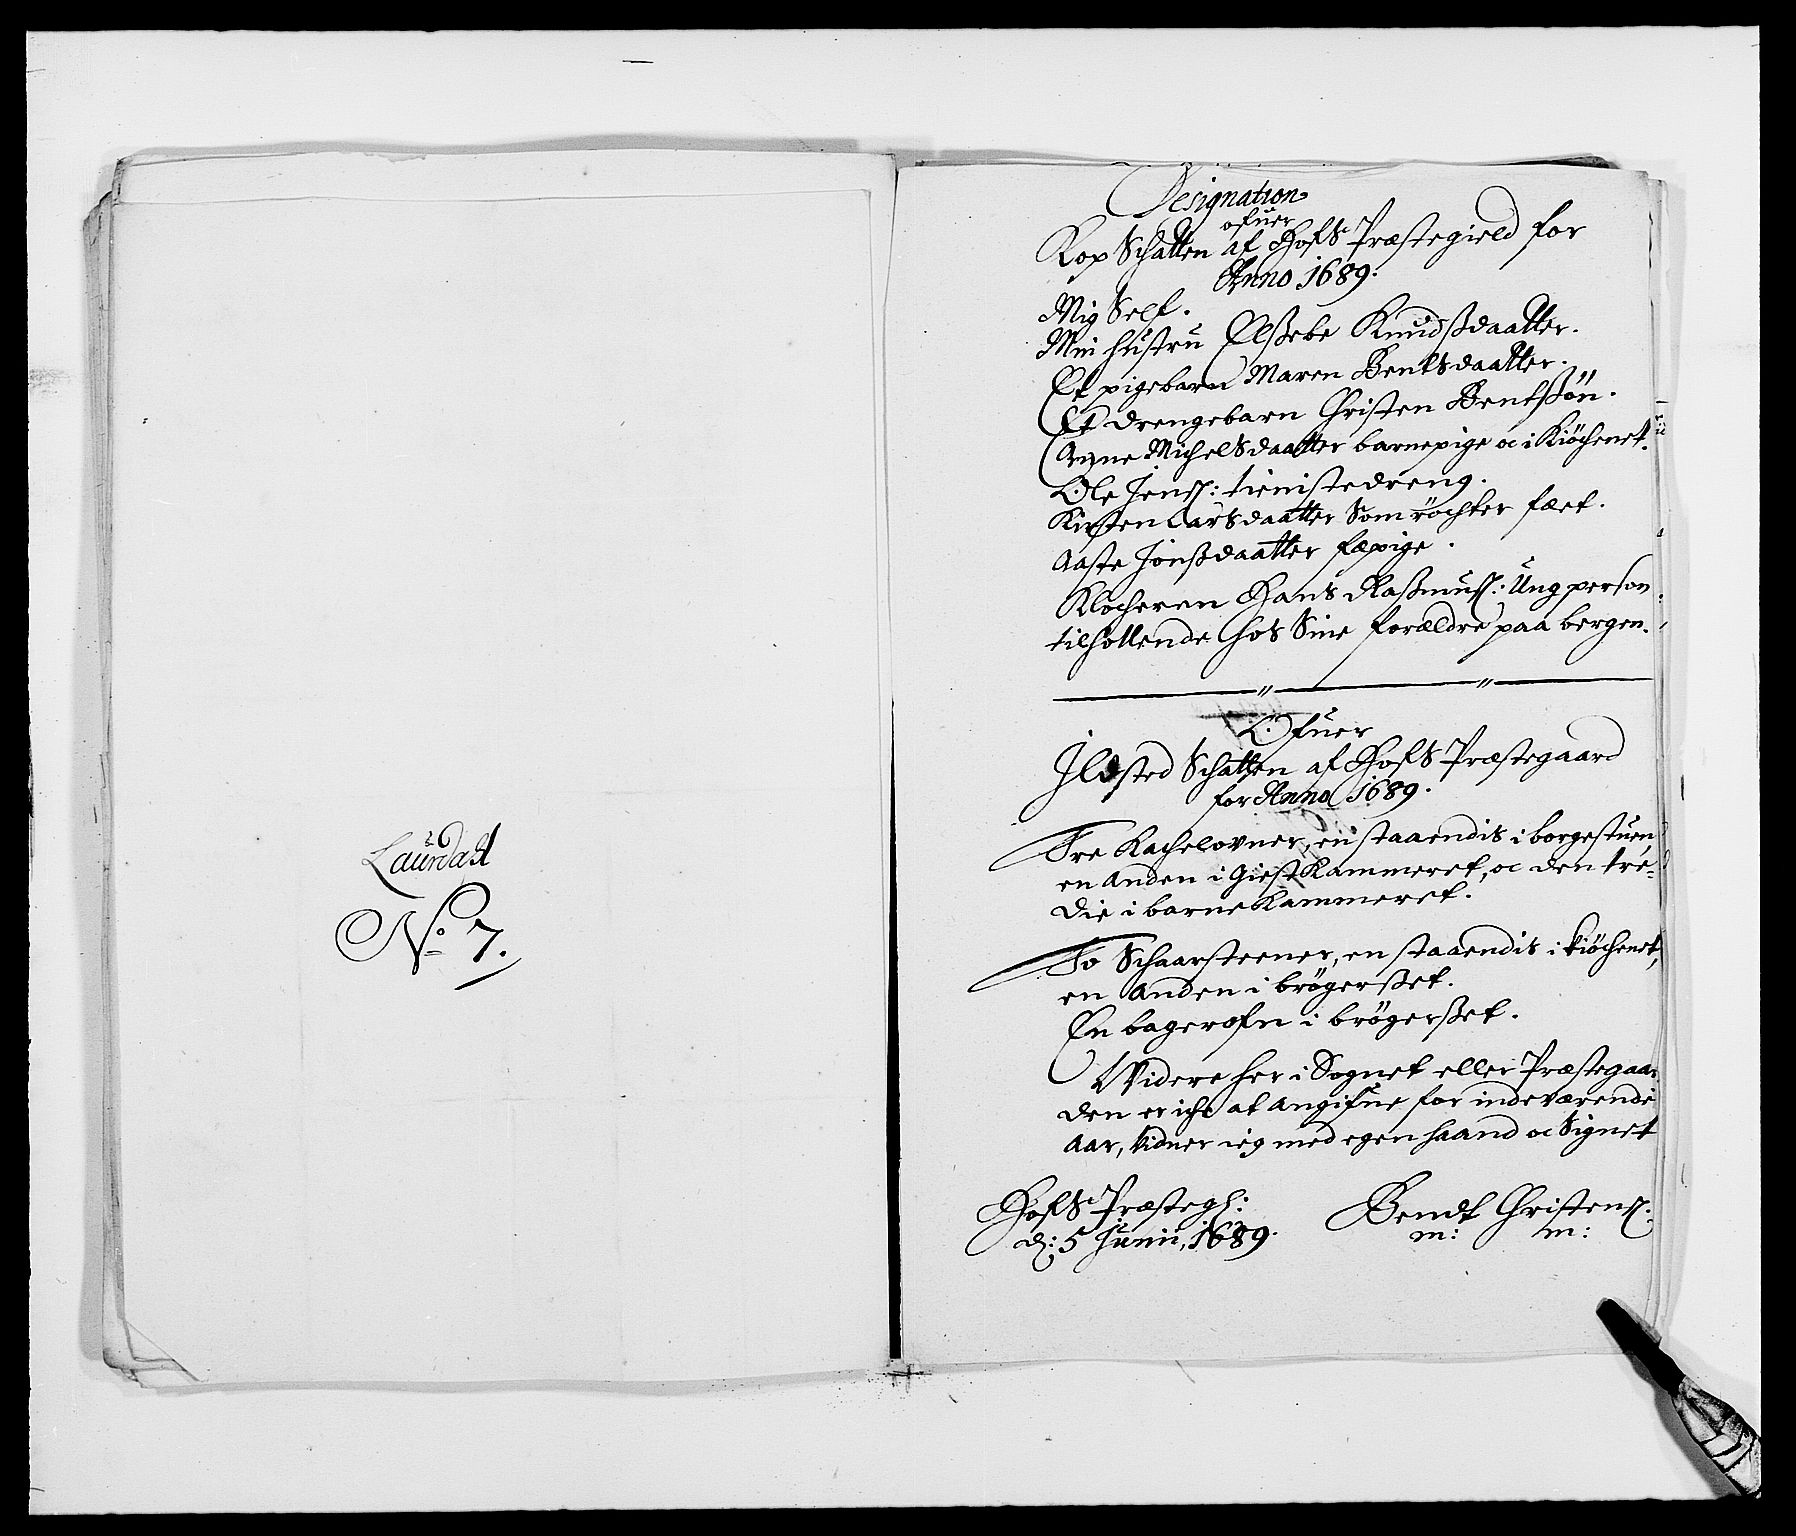 Laurdal
No 7.
Designation
ofuer
Kop Schatten af Hofs Præstegield for
Anno 1689.
Mig Self.
Min hustru Elßebe Knudßdaatter.
Et pigebarn Maren Bentsdaatter.
Et drengebarn Christen Bentßøn.
Anne Michelsdaatter barnepige oc i Kiøchenet.
Ole Jenß: tienistedreng.
Kirsten Larsdaatter Som røchter fæet.
Aaste Jonßdaatter fæpige.
Klocheren Hans Raßmuß: Ung person
tilhollende hos Sine forældre paa bergen.
Ofuer
Ildsted Schatten af Hofs Præstegaard
for Anno 1689.
Tre Kachelovner, en staaendis i borgestuen,
en anden i GiestKammeret, oc den tre-
die i barneKammeret.
To Schaarsteener, en staaendis i kiøchenet,
en anden i brøgerßet.
En bagerofn i brøgerßet.
Videre her i Sognet eller Præstegaar
den er iche at angifue for indeværende
Aar, vidner ieg med egen haand oc Signet
Hofs Præstegl:
d: 5 Junii, 1689.
Bendt Christenß:
m: m: